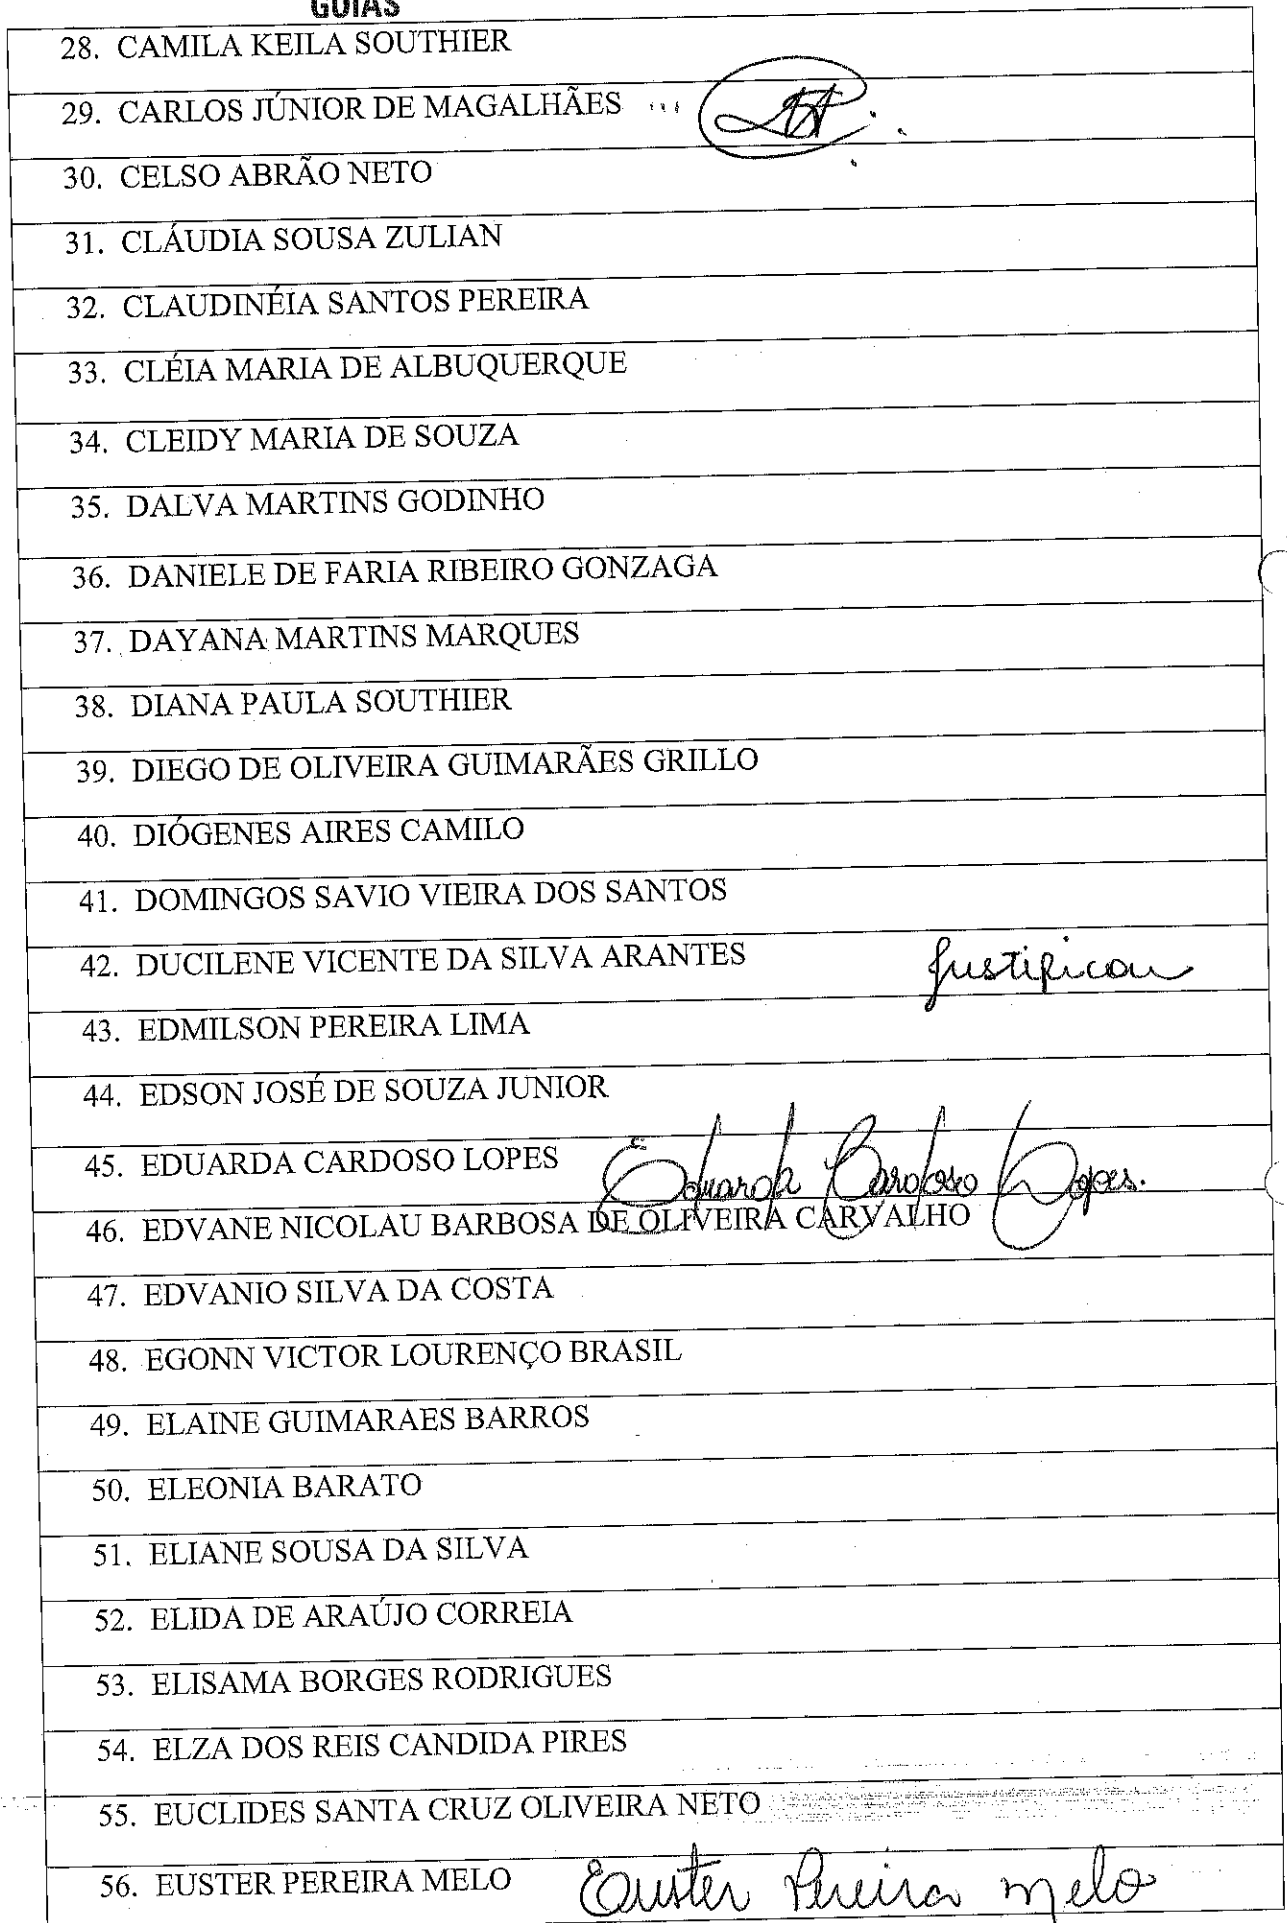 GOIÁS
28. CAMILA KEILA SOUTHIER
29. CARLOS JÚNIOR DE MAGALHÃES
30. CELSO ABRÃO NETO
31. CLÁUDIA SOUSA ZULIAN
32. CLAUDINÉIA SANTOS PEREIRA
33. CLÉIA MARIA DE ALBUQUERQUE
34. CLEIDY MARIA DE SOUZA
35. DALVA MARTINS GODINHO
36. DANIELE DE FARIA RIBEIRO GONZAGA
37. DAYANA MARTINS MARQUES
38. DIANA PAULA SOUTHIER
39. DIEGO DE OLIVEIRA GUIMARÃES GRILLO
40. DIÓGENES AIRES CAMILO
41. DOMINGOS SAVIO VIEIRA DOS SANTOS
42. DUCILENE VICENTE DA SILVA ARANTES justificou
43. EDMILSON PEREIRA LIMA
44. EDSON JOSÉ DE SOUZA JUNIOR
45. EDUARDA CARDOSO LOPES Eduarda Cardoso Lopes.
46. EDVANE NICOLAU BARBOSA DE OLIVEIRA CARVALHO
47. EDVANIO SILVA DA COSTA
48. EGONN VICTOR LOURENÇO BRASIL
49. ELAINE GUIMARAES BARROS
50. ELEONIA BARATO
51. ELIANE SOUSA DA SILVA
52. ELIDA DE ARAÚJO CORREIA
53. ELISAMA BORGES RODRIGUES
54. ELZA DOS REIS CANDIDA PIRES
55. EUCLIDES SANTA CRUZ OLIVEIRA NETO
56. EUSTER PEREIRA MELO Euster Pereira Melo